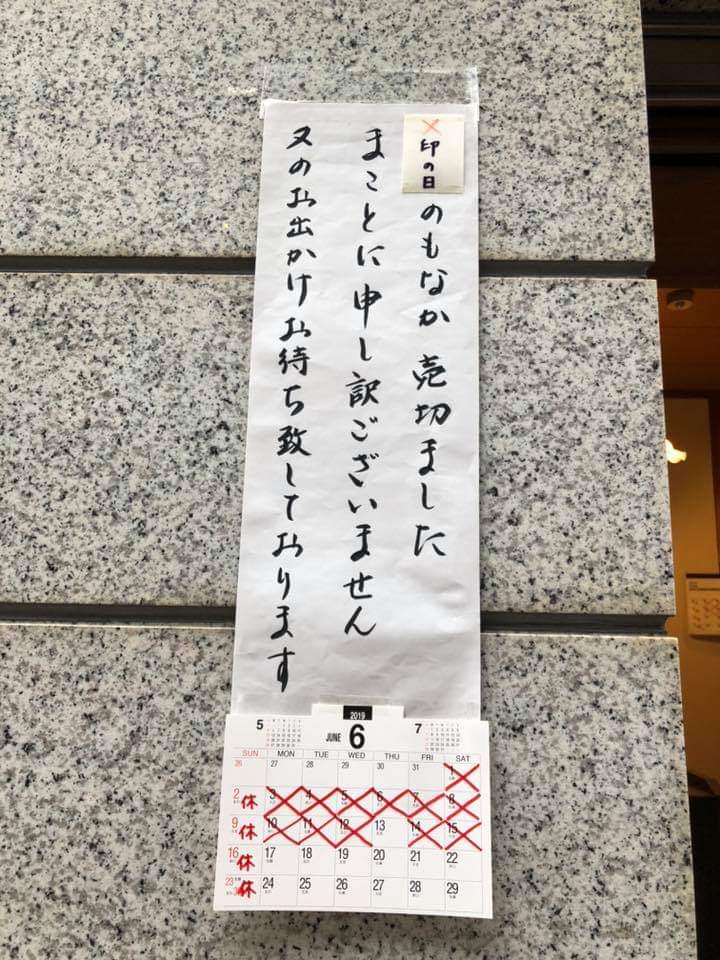 ×印の日のもなか売切ました
まことに申し訳ございません
又のお出かけお待ち致しております
2019
5 JUNE 6 7
SUN MON TUE WED THU FRI SAT
26 27 28 29 30 31 1
2 休 3 4 5 6 7 8
9 休 10 11 12 13 14 15
16 休 17 18 19 20 21 22
23 休 24 25 26 27 28 29